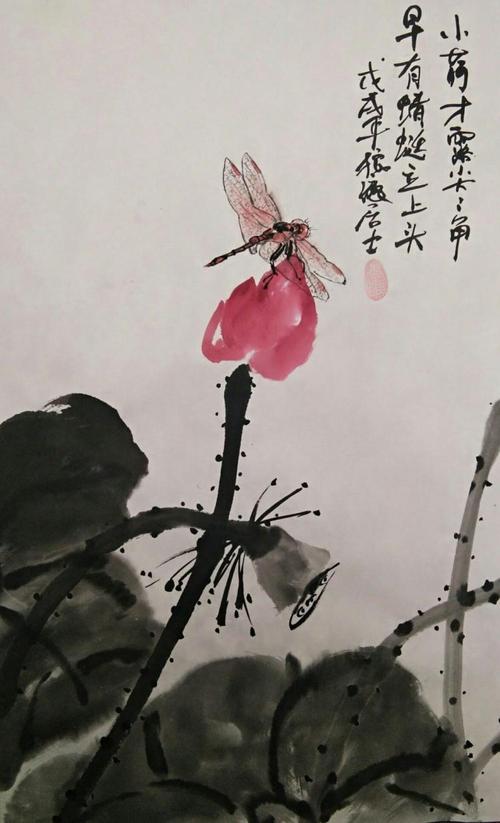 小荷才露尖尖角
早有蜻蜓立上头
戊戌年
居士